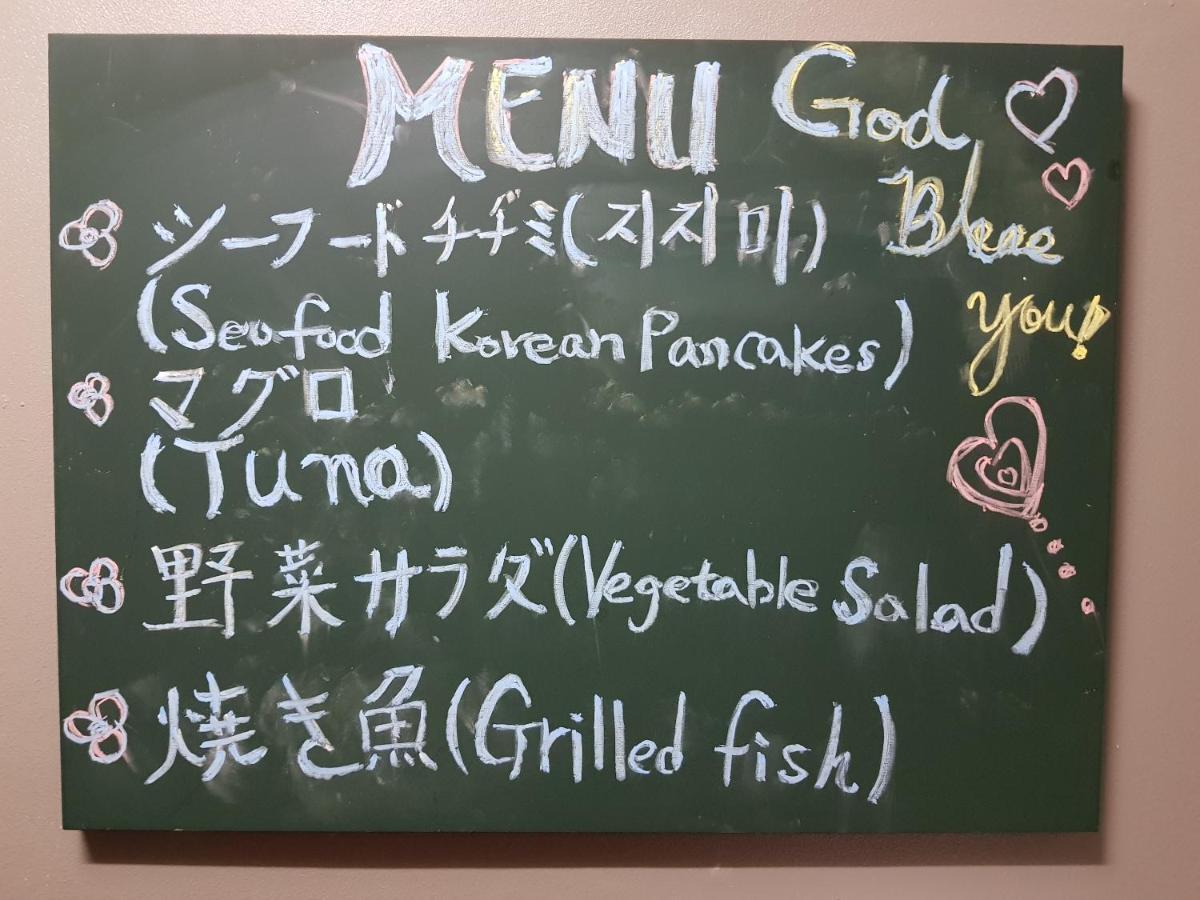 MENU
God
Bless
you!
シーフードチヂミ(지지미)
(Seafood Korean Pancakes)
マグロ
(Tuna)
野菜サラダ(Vegetable Salad)
焼き魚(Grilled fish)